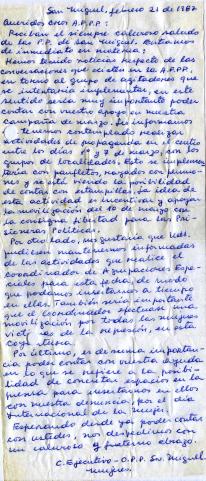 San Miguel, febrero 21 de 1987
Queridos Cros A.P.P.P.:
Reciban el siempre caluroso saludo
de las P.P. de San Miguel. Entramos
de inmediato en materia:
Hemos tenido noticias respecto de las
conversaciones que existen en la A.P.P.,
en torno al grupo de agitadores que
se intentaría implementar, en este
sentido sería muy importante poder
contar con vuestro apoyo en nuestra
campaña de marzo. Les informamos
tenemos contemplado realizar
actividades de propaganda en el centro
entre los días 1º y 7 de marzo, con los
grupos de localidades. Esto se implemen
taría con panfletos, rayados con plumo-
nes y se está viendo la posibilidad
de contar con estampillas, la idea de
esta actividad es incentivar y apoyar
la movilización del 10 de marzo con
la consigna libertad para las Pri-
sioneras Políticas.
Por otro lado, nos gustaría que Uds.
pudiesen mantenernos informadas
de las actividades que realice el
coordinador de Agrupaciones Espe-
ciales para esta fecha, de modo
que podamos insertarnos a tiempo
en ellas. También sería importante
que el Coordinador efectuase una
movilización por todas las mujeres
víct as de la represión, en esta
coyuntura.
Por último, es de suma importan-
cia poder contar con vuestra ayuda
lo que se refiere a la posibi-
lidad de concretar espacios en la
prensa para insertarnos en ellos
con nuestra denuncia, por el día
Internacional de la mujer.
Esperando desde ya poder contar
con ustedes, nos despedimos con
un caluroso y fraterno abrazo.
C. Ejecutivo - O.P.P. Sn. Miguel
mujeres.